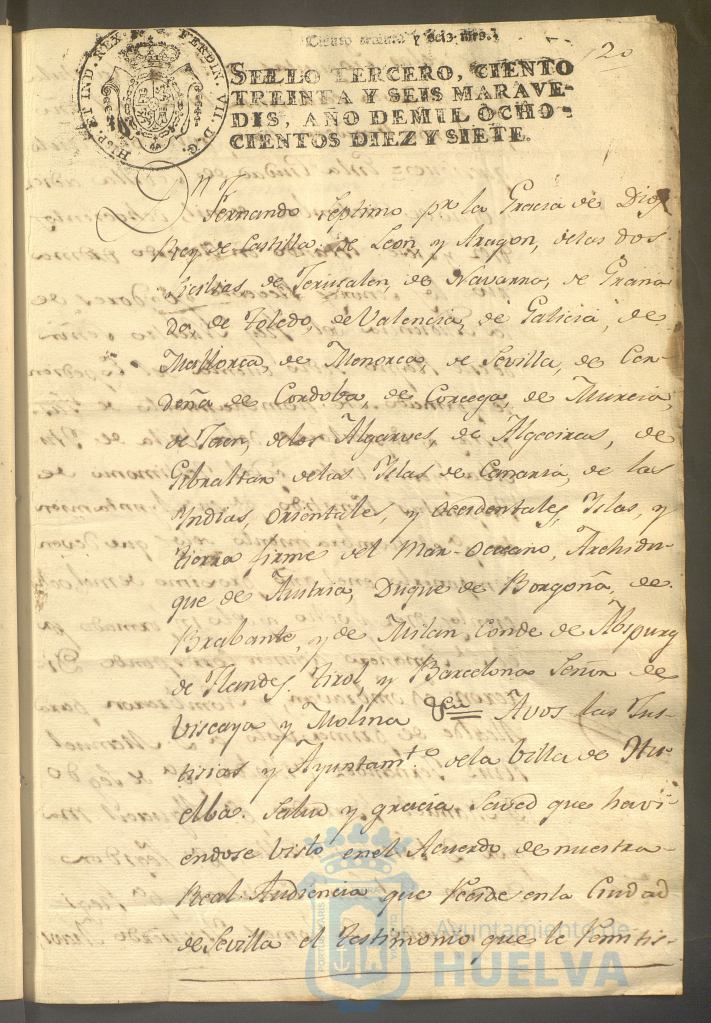 Ciento treinta y seis mrs.
20
HISP. ET IND. REX. FERDIN. VII. D. G.
SELLO TERCERO, CIENTO
TREINTA Y SEIS MARAVE-
DIS, AÑO DE MIL OCHO-
CIENTOS DIEZ Y SIETE.
Dn Fernando Septimo pr. la Gracia de Dios
Rey de Castilla de Leon y Aragon, delas dos
Sicilias de Jerusalen, de Navarra, de Grana
da, de Toledo, de Valencia, de Galicia, de
Mallorca, de Menorca, de Sevilla, de Cer-
deña de Cordoba, de Corcega, de Murcia,
de Jaen, delos Algarves, de Algeciras, de
Gibraltar delas Yslas de Canaria, de las
Yndias, Orientales, y Occidentales, Yslas, y
tierra firme del Mar-Occeano, Archidu-
que de Austria, Duque de Borgoña, de
Brabante, y de Milan Conde de Abspurg
de Flandes. tirol y Barcelona Señor de
Viscaya y Molina &ca Avos las Jus-
ticias y Ayuntamto. dela Villa de Hu-
elba. Salud y gracia Saved que havi-
endose visto enel Acuerdo de nuestra
Real Audiencia que reside enla Ciudad
de Sevilla el testimonio que le remitis-
Ayuntamiento de
HUELVA